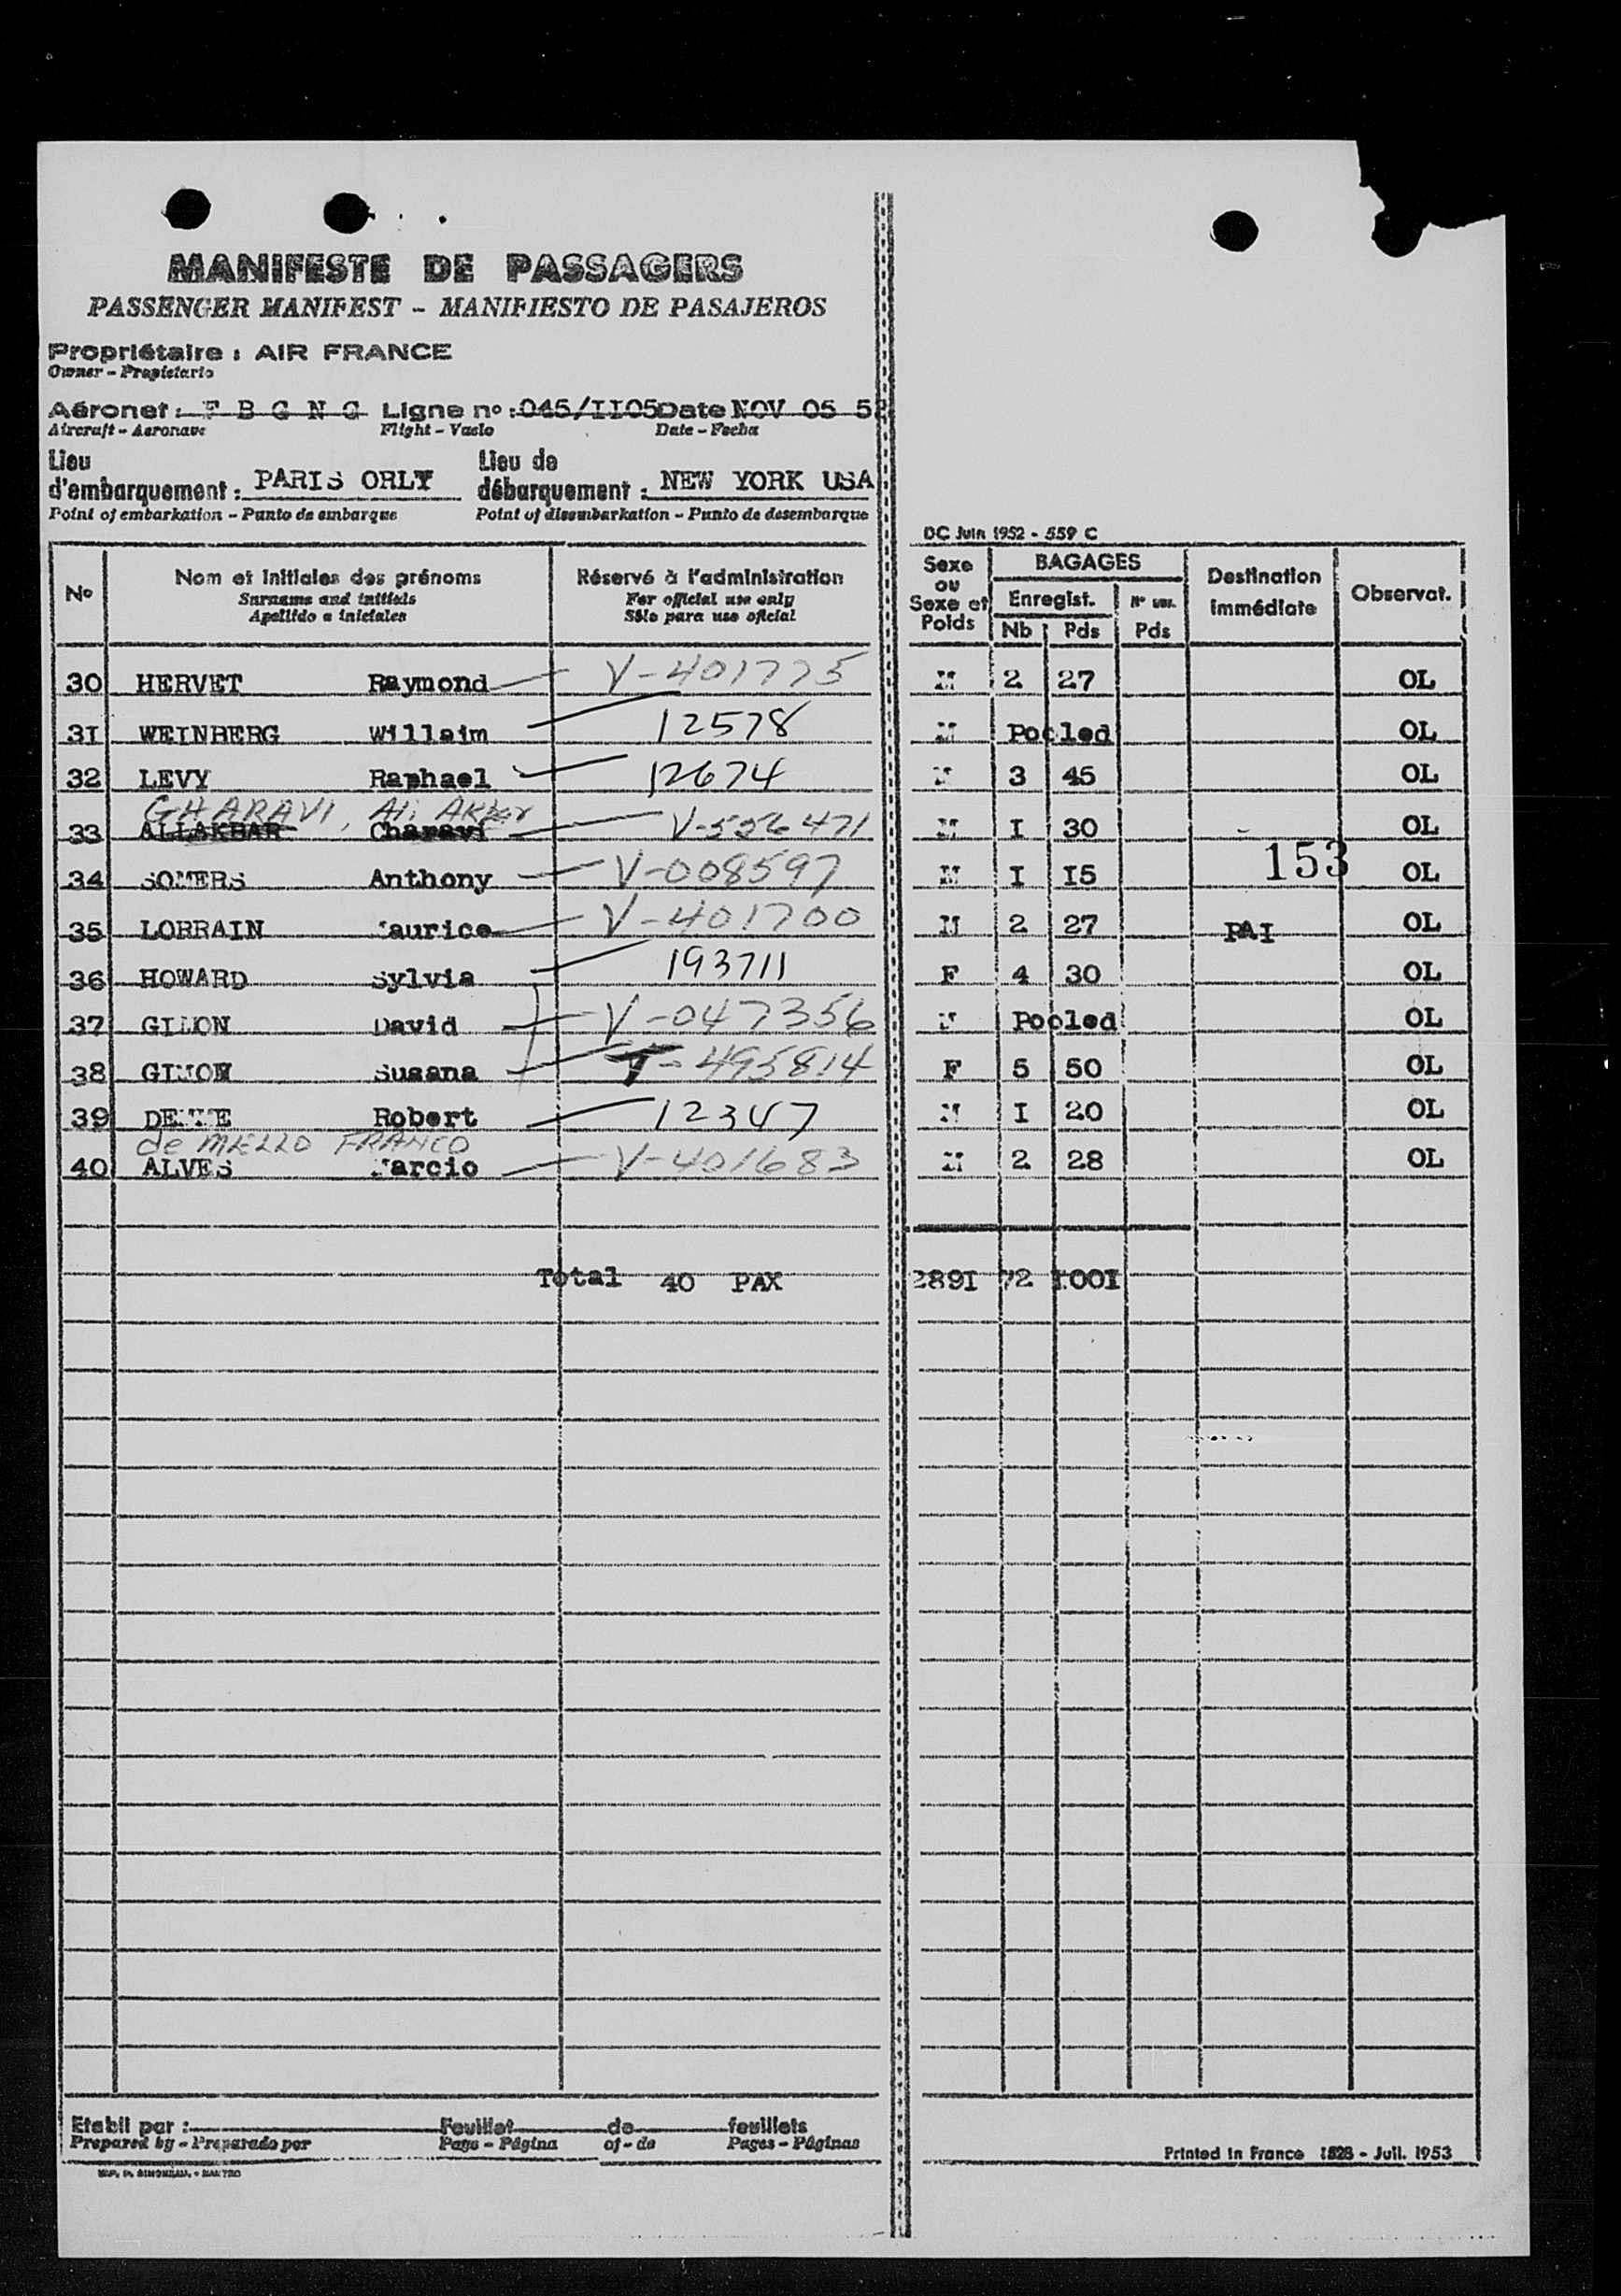 MANIFESTE DE PASSAGERS
PASSENGER MANIFEST - MANIFIESTO DE PASAJEROS
Propriétaire : AIR FRANCE
Owner - Propietario
Aéronef : F B G N G Ligne no : 045/II05 Date NOV 05 53
Aircraft - Aeronave Flight - Vuelo Date - Fecha
Lieu d'embarquement : PARIS ORLY Lieu de débarquement : NEW YORK USA
Point of embarkation - Punto de embarque Point of disembarkation - Punto de desembarque
DC Juin 1952 - 559 C
No Nom et initiales des prénoms Réservé à l'administration Sexe ou Sexe et Poids BAGAGES Destination immédiate Observat.
Surnams and initials For official use only Enregist.
Apellido e iniciales Sólo para uso oficial Nb Pds Pds
30 HERVET Raymond V-401775 M 2 27 OL
3I WEINBERG Willaim 12578 M Pooled OL
32 LEVY Raphael 12674 M 3 45 OL
GHARAVI, Ali Akber
33 ALLAKBAR Charavi V-556471 M I 30 OL
153
34 SOMERS Anthony V-008597 M I I5 OL
35 LORRAIN Maurice V-401700 M 2 27 PAI OL
36 HOWARD Sylvia 193711 F 4 30 OL
37 GIMON David V-047356 M Pooled OL
38 GIMON Susana V-495814 F 5 50 OL
39 Robert 12347 M I 20 OL
de MELLO FRANCO
40 ALVES Marcio V-401683 M 2 28 OL
Total 40 PAX 289I 72 I00I
Etabli par : Feuillet de feuillets
Prepared by - Preparado por Page - Página of - de Pages - Páginas
Printed in France 1528 - Juil. 1953